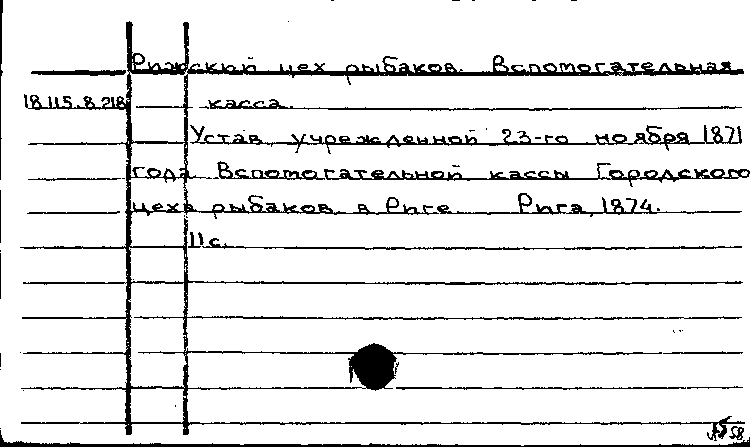 Рижский цех рыбаков. Вспомогательная
18.115.8.218 касса.
Устав, учрежденной 23-го ноября 1871
года Вспомогательной кассы Городского
цеха рыбаков в Риге. Рига, 1874.
11 с.